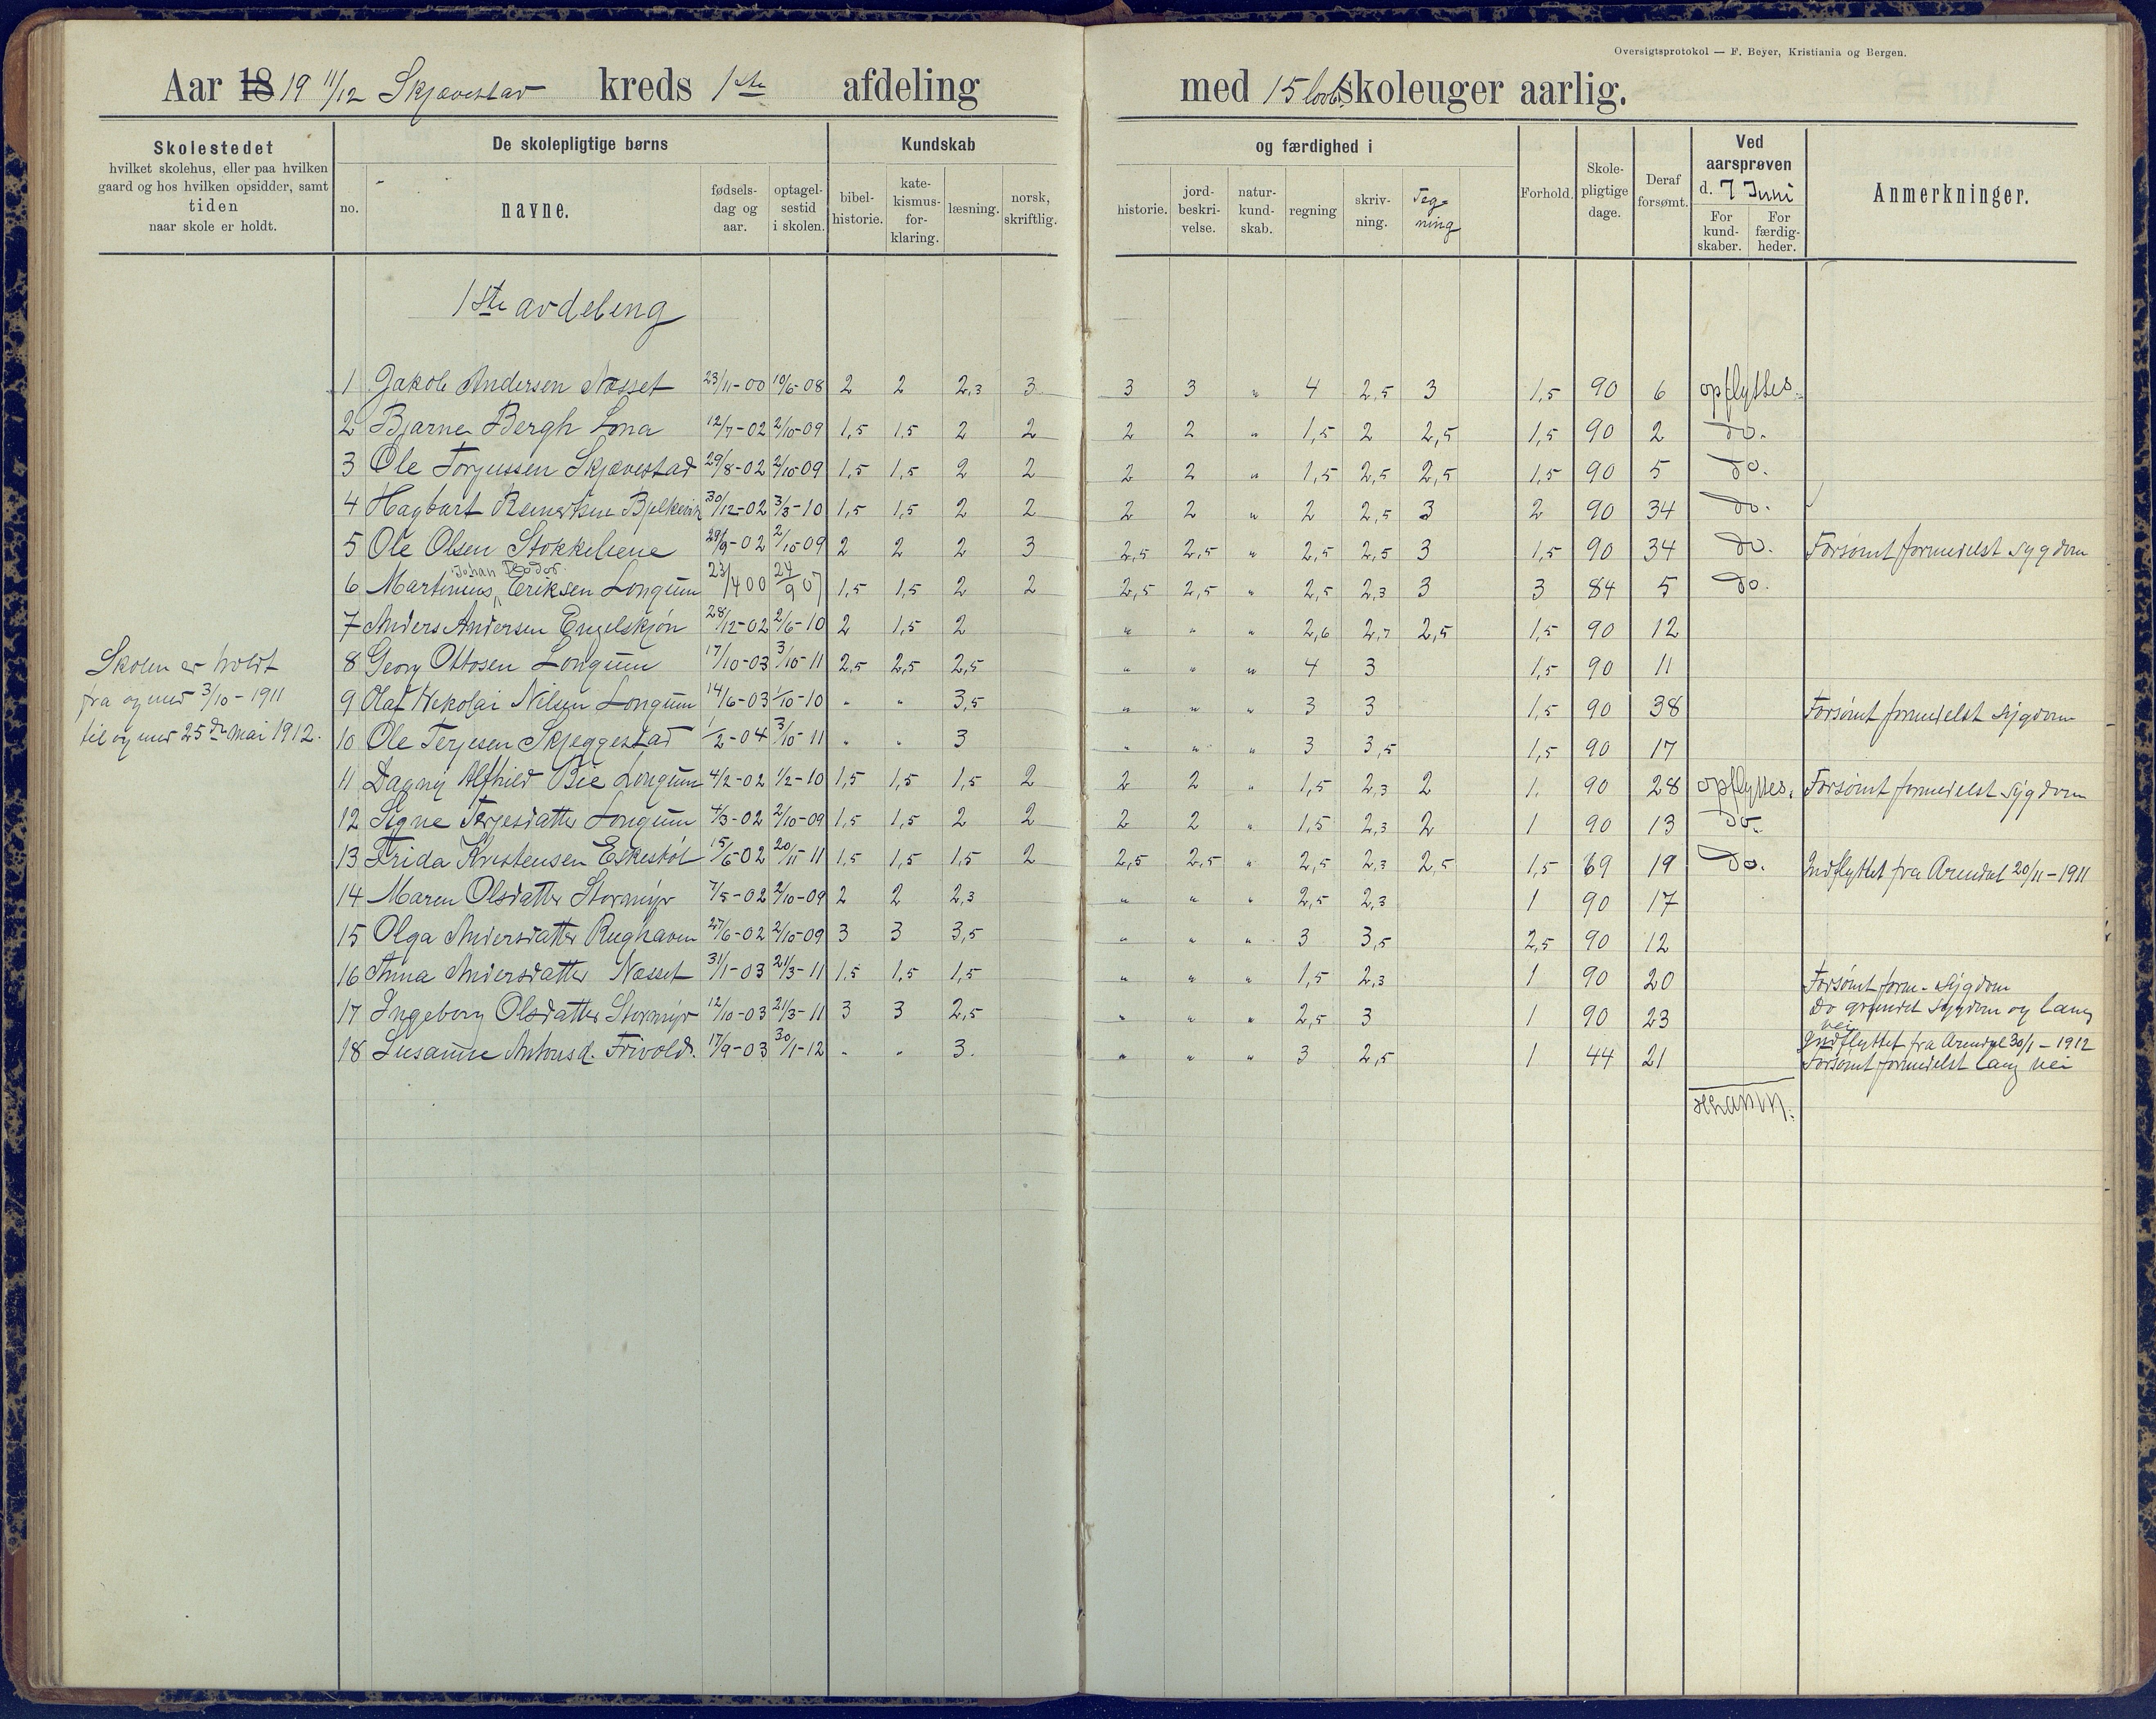 Oversigtsprotokol — F. Beyer, Kristiania og Bergen.
Aar 18 19 11/12 Skjævestad kreds 1ste afdeling med 15 lovb. skoleuger aarlig.
Skolestedet
hvilket skolehus, eller paa hvilken
gaard og hos hvilken opsidder, samt
tiden
naar skole er holdt.
De skolepligtige børns
no.
navne.
fødsels-
dag og
aar.
optagel-
sestid
i skolen.
Kundskab
bibel-
historie.
kate-
kismus-
for-
klaring.
læsning.
norsk,
skriftlig.
og færdighed i
historie.
jord-
beskri-
velse.
natur-
kund-
skab.
regning
skriv-
ning.
Teg-
ning
Forhold.
Skole-
pligtige
dage.
Deraf
forsømt.
Ved
aarsprøven
d. 7 Juni
For
kund-
skaber.
For
færdig-
heder.
Anmerkninger.
1ste avdeling
1 Jakob Andersen Næsset 23/11-00 10/6-08 2 2 2,3 3 3 3 " 4 2,5 3 1,5 90 6 opflyttes.
2 Bjarne Bergh Lona 12/7-02 2/10-09 1,5 1,5 2 2 2 2 " 1,5 2 2,5 1,5 90 2 do.
3 Ole Torjussen Skjævestad 29/8-02 2/10-09 1,5 1,5 2 2 2 2 " 1,5 2,5 2,5 1,5 90 5 do.
4 Hagbart 30/12-02 3/3-10 1,5 1,5 2 2 2 2 " 2 2,5 3 2 90 34 do.
5 Ole Olsen Stokkeliene 29/9-02 2/10-09 2 2 2 3 2,5 2,5 " 2,5 2,5 3 1,5 90 34 do. Forsømt formedelst Sygdom
Johan Teodor
6 Martinius Eriksen Longum 23/4 00 24/9 07 1,5 1,5 2 2 2,5 2,5 " 2,5 2,3 3 3 84 5 do.
7 Anders Andersen Engelskjøn 28/12-02 2/6-10 2 1,5 2 " " " 2,6 2,7 2,5 1,5 90 12
8 Georg Ottosen Longum 17/10-03 3/10-11 2,5 2,5 2,5 " " " 4 3 1,5 90 11
9 Olaf Nikolai Nilsen Longum 14/6-03 1/10-10 " " 3,5 " " " 3 3 1,5 90 38 Forsømt formedelst Sygdom
10 Ole Terjesen Skjeggestad 1/2-04 3/10-11 " " 3 " " " 3 3,5 1,5 90 17
11 Dagny Alfhild Bie Longum 4/2-02 1/2-10 1,5 1,5 1,5 2 2 2 " 1,5 2,3 2 1. 90 28 opflyttes. Forsømt formedelst Sygdom
12 Signe Terjesdatter Longum 4/3-02 2/10-09 1,5 1,5 2 2 2 2 " 1,5 2,3 2 1 90 13 do.
13 Frida Kristensen Eskestøl 15/6-02 20/11-11 1,5 1,5 1,5 2 2,5 2,5 " 2,5 2,3 2,5 1,5 69 19 do. Indflyttet fra Arendal 20/11-1911
14 Maren Olsdatter Stormyr 7/5-02 2/10-09 2 2 2,3 " " " 2,5 2,3 1 90 17
15 Olga Andersdatter Rughaven 27/6-02 2/10-09 3 3 3,5 " " " 3 3,5 2,5 90 12
16 Anna Andersdatter Næsset 31/1-03 21/3-11 1,5 1,5 1,5 " " " 1,5 2,3 1 90 20 Forsømt form. Sygdom
17 Ingeborg Olsdatter Stormyr 12/10-03 21/3-11 3 3 2,5 " " " 2,5 3 1 90 23 Do grundet Sygdom og lang
vei
18 Susanne Antonsd. Frivold. 17/9-03 30/1-12 " " 3. " " " 3 2,5 1 44 21 Indflyttet fra Arendal 30/1-1912
Forsømt formedelst lang vei
Skolen er holdt
fra og med 3/10-1911
til og med 25de mai 1912.